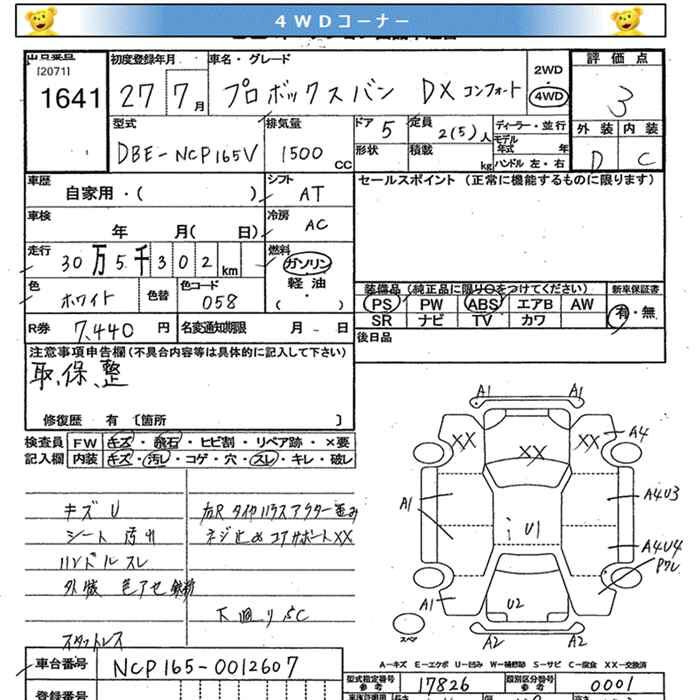 4WDコーナー
出品番号 初度登録年月 車名・グレード 評価点
[2071]
1641 27 7月 プロボックスバン DX コンフォート 2WD 4WD 3
型式 排気量 ドア 5 定員 2(5)人 ディーラー・並行 外装 内装
DBE-NCP165V 1500cc 形状 積載 kg モデル年式 年 ハンドル 左・右 D C
車歴 シフト セールスポイント (正常に機能するものに限ります)
自家用・( ) AT
車検 冷房
年 月( 日) AC
走行 燃料
30万5千302km ガソリン
軽油
( )
装備品(純正品に限り○をつけてください) 新車保証書
色 ホワイト 色替 色コード 058 PS PW ABS エアB AW 有・無
SR ナビ TV カワ
R券 7,440円 名変通知期限 月 日 後日品
注意事項申告欄(不具合内容等は具体的に記入して下さい)
取、保、整
修復歴 有 〔箇所 〕
検査員 FW キズ・飛石・ヒビ割・リペア跡・×要
記入欄 内装 キズ・汚レ・コゲ・穴・スレ・キレ・破レ
A1 A1
XX XX XX A4
A1 A4U3
U1
A4U4
Pワレ
A1 U2
スペア A2 A2
キズ U
シート 汚れ ネジ止め コアサポートXX
ハンドル スレ
外装 色アセ
下廻りSC
スタットレス
A-キズ E-エクボ U-凹み W-補修跡 S-サビ C-腐食 XX-交換済
車台番号 NCP165-0012607 型式指定番号 参考 17826 類別区分番号 参考 0001
登録番号